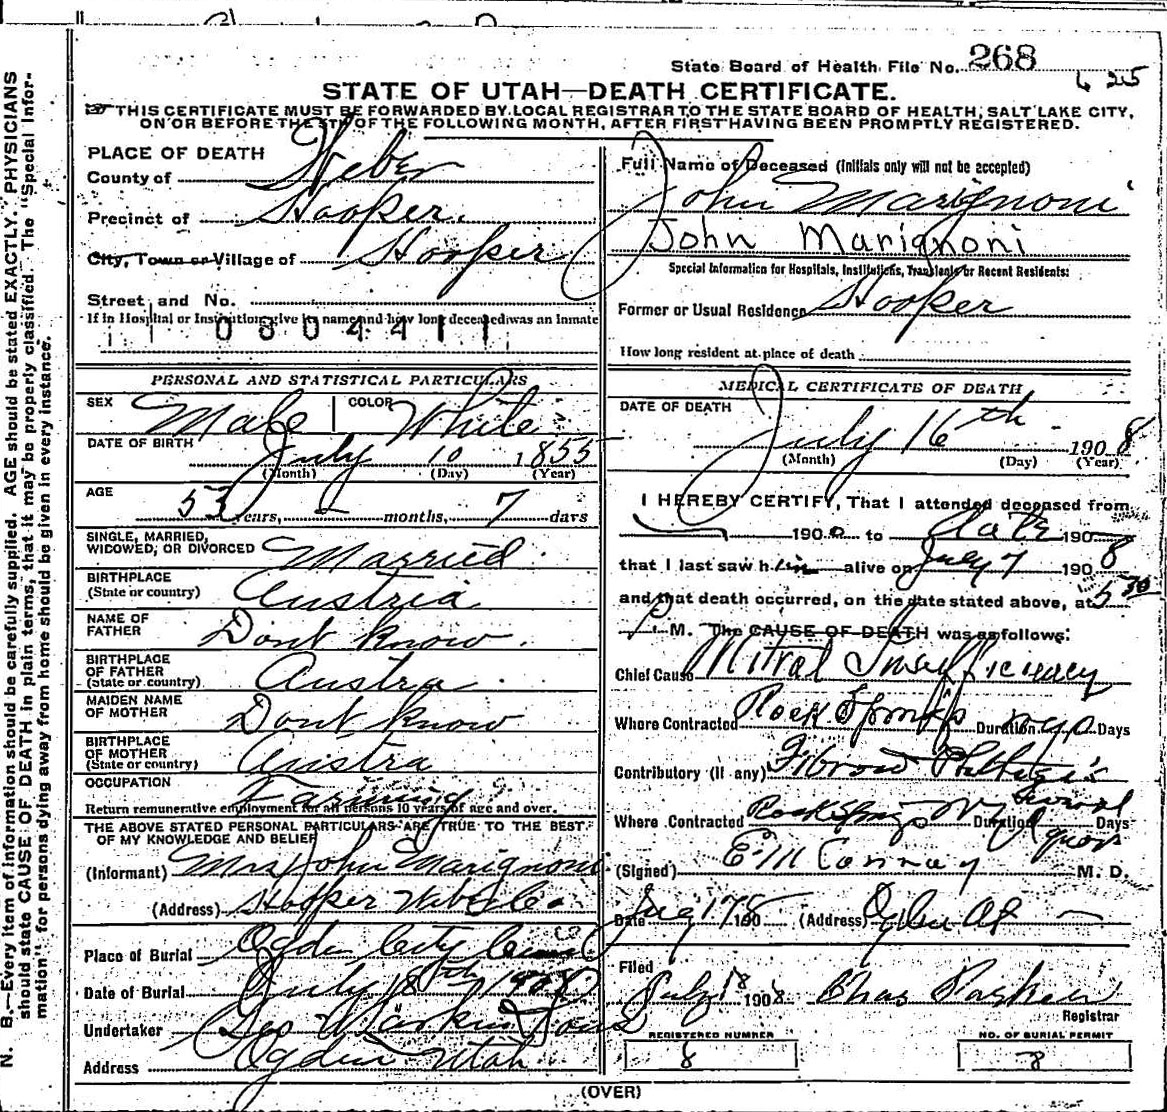 State Board of Health File No. 268
625
STATE OF UTAH—DEATH CERTIFICATE.
THIS CERTIFICATE MUST BE FORWARDED BY LOCAL REGISTRAR TO THE STATE BOARD OF HEALTH, SALT LAKE CITY,
ON OR BEFORE THE 5TH OF THE FOLLOWING MONTH, AFTER FIRST HAVING BEEN PROMPTLY REGISTERED.
PLACE OF DEATH
County of Weber
Precinct of Hooper.
City, Town or Village of Hooper
Street and No.
If in Hospital or Institution, give its name and how long deceased was an inmate
0804411
PERSONAL AND STATISTICAL PARTICULARS
SEX Male COLOR White
DATE OF BIRTH
July 10 1855
(Month) (Day) (Year)
AGE
53 years, - months, 7 days
SINGLE, MARRIED,
WIDOWED, OR DIVORCED Married
BIRTHPLACE
(State or country) Austria
NAME OF
FATHER Dont Know.
BIRTHPLACE
OF FATHER
(State or country) Austra
MAIDEN NAME
OF MOTHER Dont Know
BIRTHPLACE
OF MOTHER
(State or country) Austra
OCCUPATION Farming
Return remunerative employment for all persons 10 years of age and over.
THE ABOVE STATED PERSONAL PARTICULARS ARE TRUE TO THE BEST
OF MY KNOWLEDGE AND BELIEF
(Informant) Mrs John Marignoni
(Address) Hooper
Place of Burial Ogden City
Date of Burial July 18th 1908
Undertaker Geo Larkin Sons
Address Ogden Utah
Full Name of Deceased (Initials only will not be accepted)
John Marignoni
John Marignoni
Special Information for Hospitals, Institutions, Transients or Recent Residents:
Former or Usual Residence Hooper
How long resident at place of death
MEDICAL CERTIFICATE OF DEATH
DATE OF DEATH
July 16th 1908
(Month) (Day) (Year)
I HEREBY CERTIFY, That I attended deceased from
190 to date 190
that I last saw him alive on July 7 1908
and that death occurred, on the date stated above, at 5 30
P M. The CAUSE OF DEATH was as follows:
Chief Cause Mitral Insufficiency
Where Contracted Rock Springs Duration Days
Contributory (if any) Fibroid Phthisis
Where Contracted Rock Springs Wy Duration Several years Days
(Signed) E. M. Conroy M. D.
Date 17 1908 (Address) Ogden
Filed
July 18 1908 Chas Parker
Registrar
REGISTERED NUMBER
8
NO. OF BURIAL PERMIT
8
(OVER)
N. B.—Every item of information should be carefully supplied. AGE should be stated EXACTLY. PHYSICIANS
should state CAUSE OF DEATH in plain terms, that it may be properly classified. The "Special Infor-
mation" for persons dying away from home should be given in every instance.